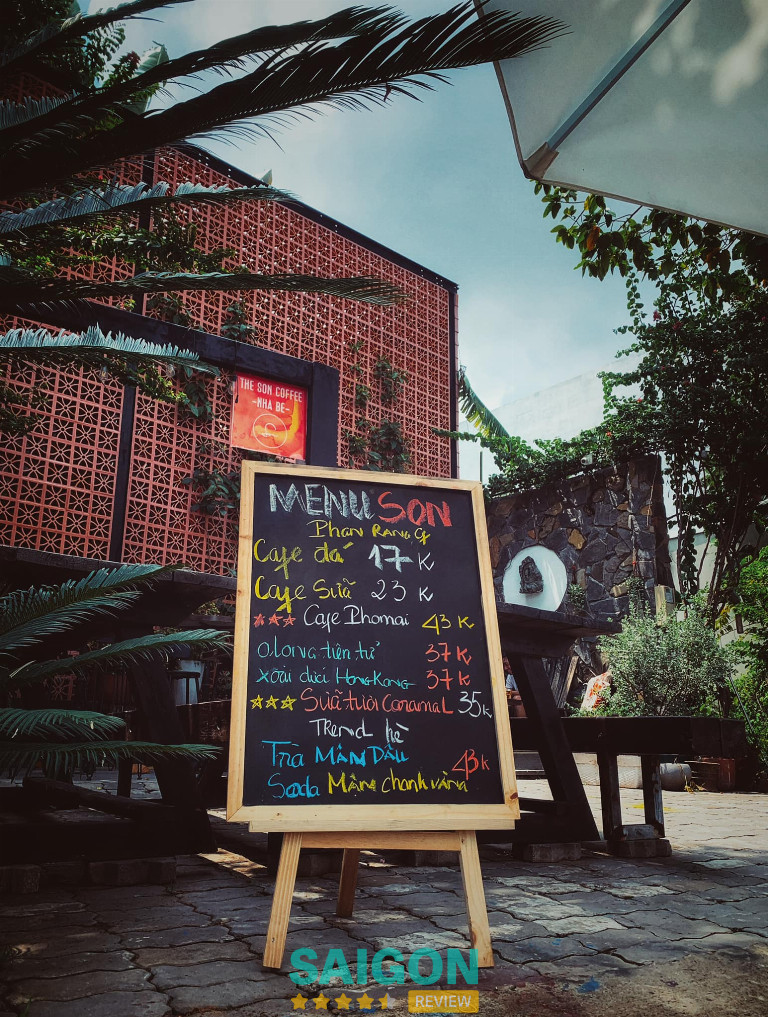 THE SON COFFEE
-NHA BE-
MENU SON
Phan Rang
Cafe đá 17 K
Cafe Sữa 23 K
Cafe Phomai 43 K
Olong tiên tử 37 K
xoài dưới HongKong 37 K
Sữa tươi Caramal 35 K
Trend hè
Trà Mận Dâu 43 K
Soda Mận chanh vàng
SAIGON
REVIEW